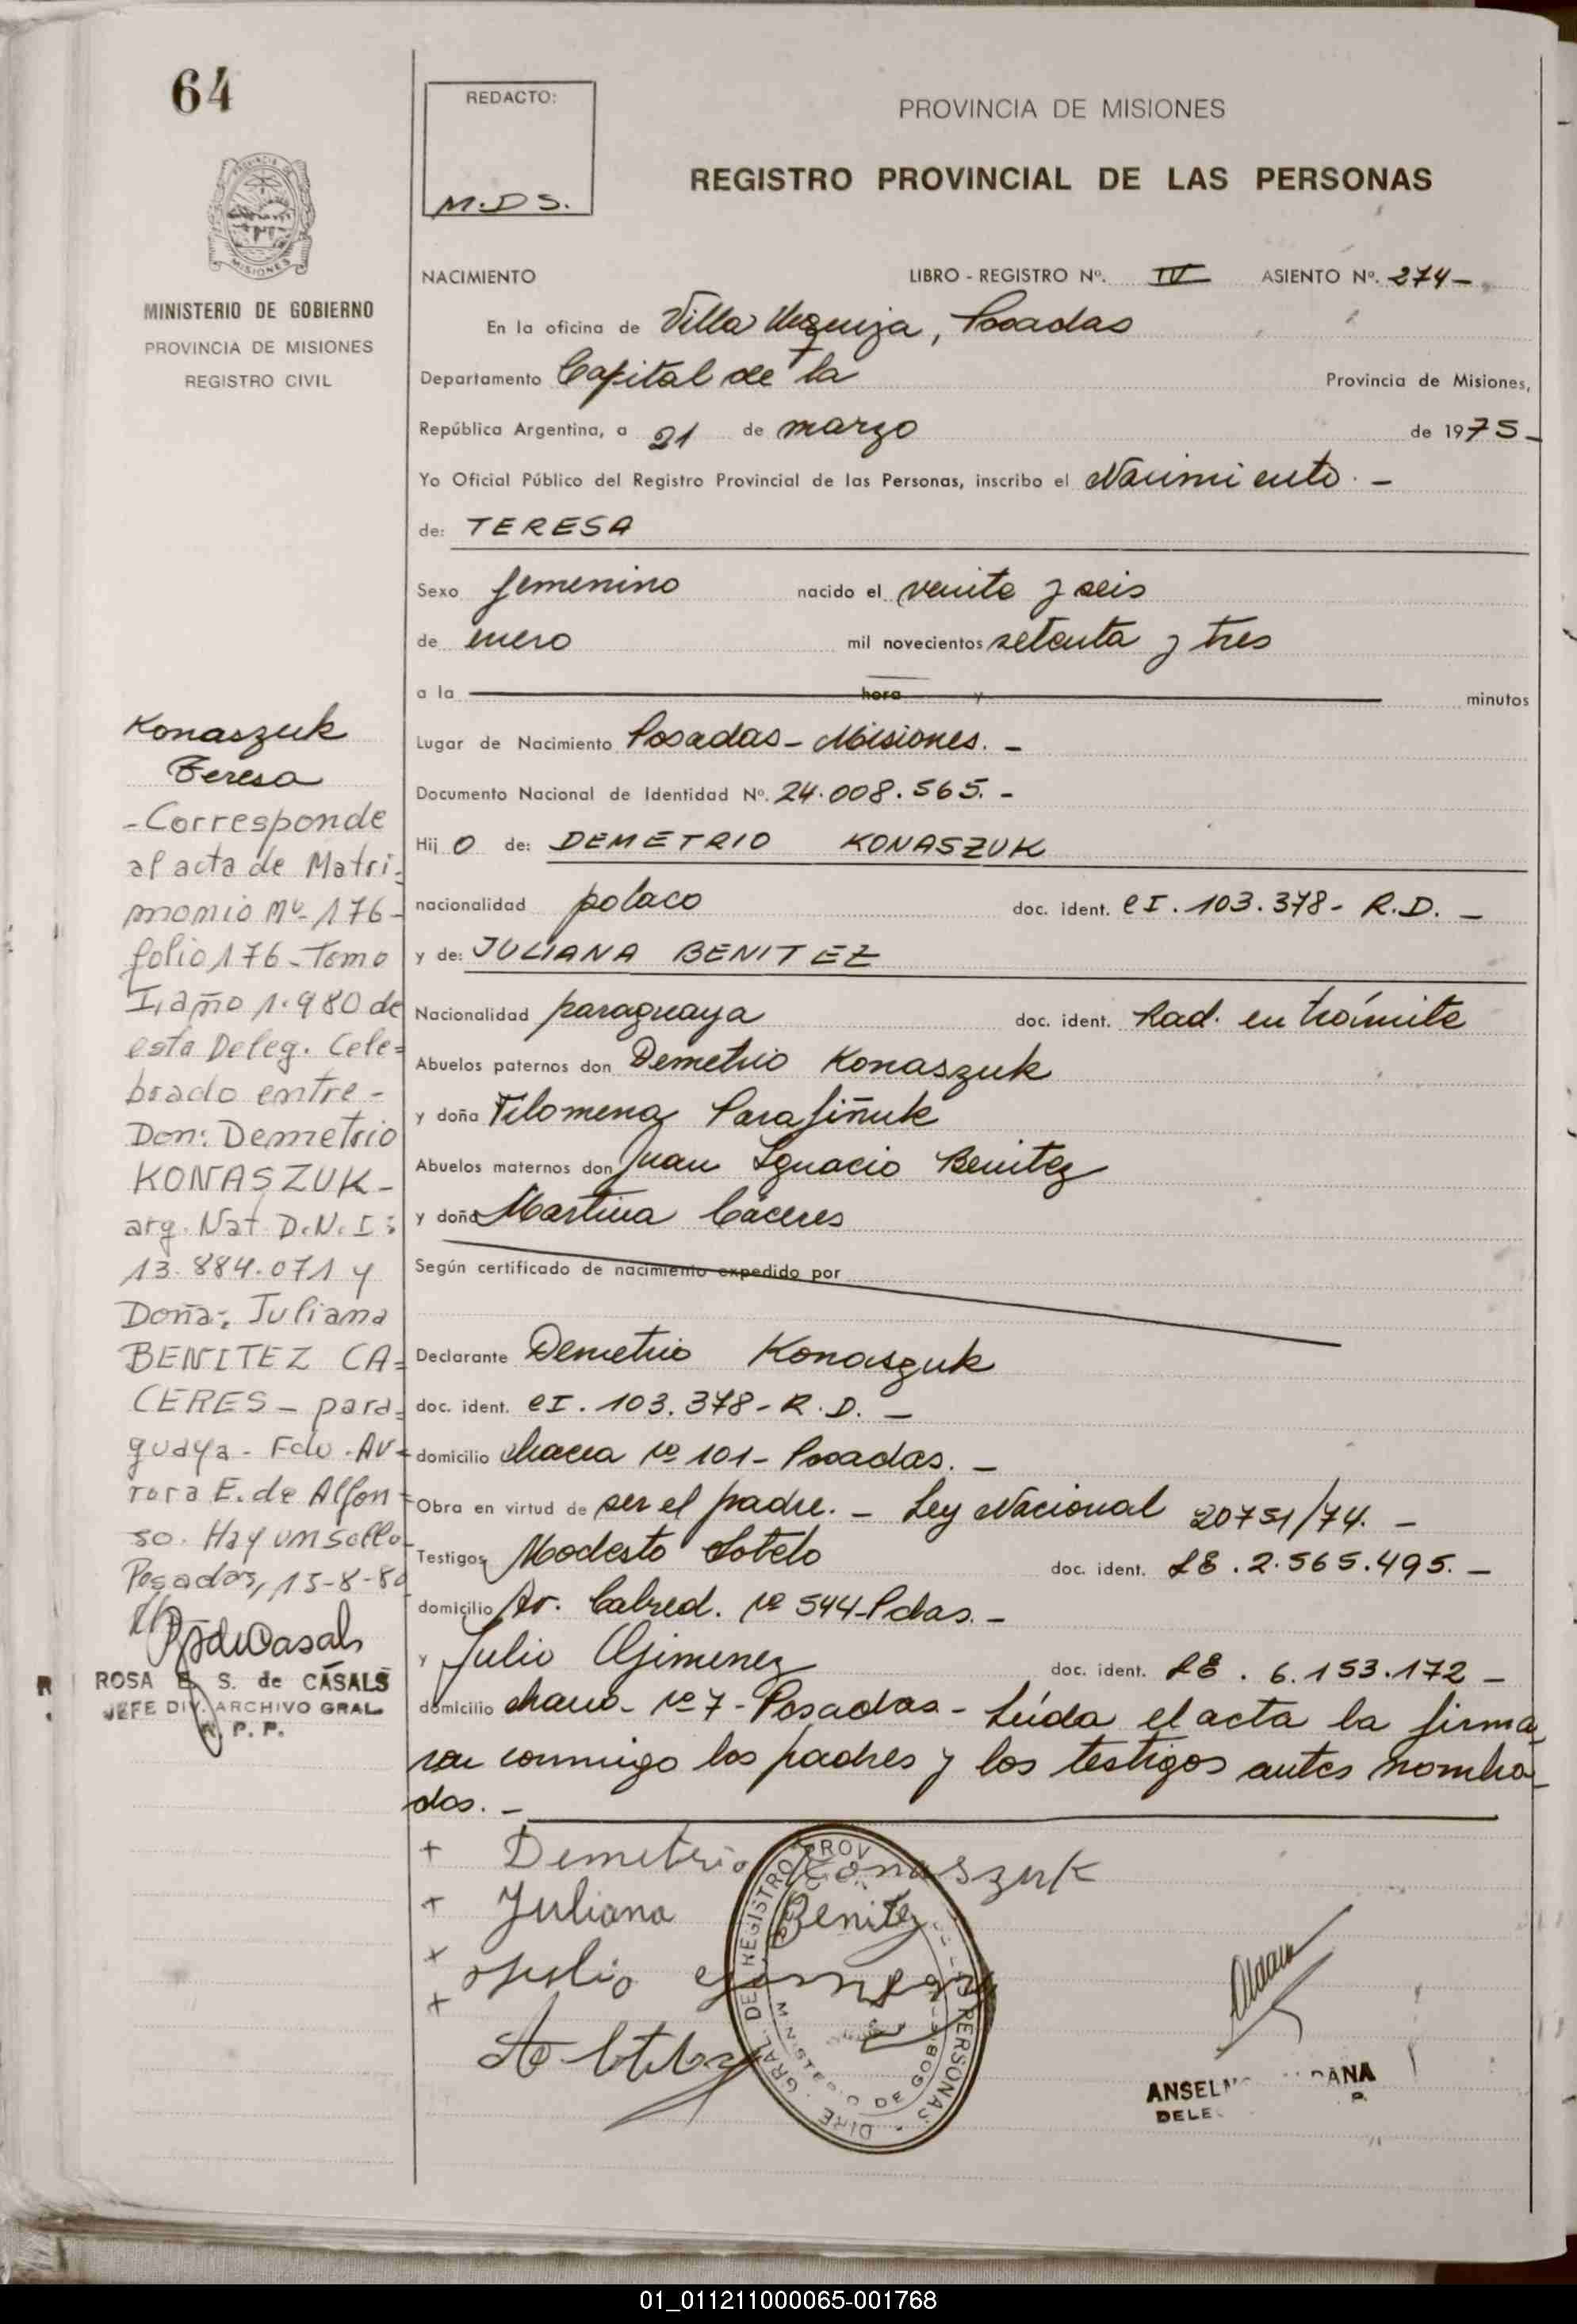 64
REDACTO:
M.D.S.
PROVINCIA DE MISIONES
REGISTRO PROVINCIAL DE LAS PERSONAS
MISIONES
MINISTERIO DE GOBIERNO
PROVINCIA DE MISIONES
REGISTRO CIVIL
NACIMIENTO LIBRO - REGISTRO Nº. IV ASIENTO Nº. 274 -
En la oficina de Villa Urquiza, Posadas
Departamento Capital de la Provincia de Misiones,
República Argentina, a 21 de marzo de 1975 -
Yo Oficial Público del Registro Provincial de las Personas, inscribo el Nacimiento. -
de: TERESA
Sexo femenino nacido el veinte y seis
de enero mil novecientos setenta y tres
a la hora y minutos
Lugar de Nacimiento Posadas - Misiones. -
Documento Nacional de Identidad Nº. 24.008.565. -
Hij o de: DEMETRIO KONASZUK
nacionalidad polaco doc. ident. CI. 103.378 - R.D. -
y de: JULIANA BENITEZ
Nacionalidad paraguaya doc. ident. Rad. en trámite
Abuelos paternos don Demetrio Konaszuk
y doña Filomena Parafiñuk
Abuelos maternos don Juan Ignacio Benitez
y doña Martina Cáceres
Según certificado de nacimiento expedido por
Declarante Demetrio Konaszuk
doc. ident. CI. 103.378 - R.D. -
domicilio chacra Nº 101 - Posadas. -
Obra en virtud de ser el padre. - Ley Nacional 20751/74. -
Testigos Modesto Sotelo doc. ident. LE. 2.565.495. -
domicilio Av. Cabred. Nº 544 - Pdas. -
y Julio Gimenez doc. ident. LE. 6.153.172 -
domicilio chacra - Nº 7 - Posadas - Leída el acta la firma
ron conmigo los padres y los testigos antes nombra
dos. -
+ Demetrio Konaszuk
+ Juliana Benitez
+ Julio Gimenez
+
DIRE. GRAL. DEL REGISTRO PROV. PERSONAS
MINISTERIO DE GOBIERNO
DELE
Konaszuk
Teresa
- Corresponde
al acta de Matri-
monio Nº 176 -
folio 176 - Tomo
I, año 1.980 de
esta Deleg. Cele=
brado entre -
Don: Demetrio
KONASZUK -
arg. Nat. D.N.I:
13.884.071 y
Doña: Juliana
BENITEZ CA=
CERES - para=
guaya - Fdo. Au=
rora E. de Alfon
so. Hay un sello
Posadas, 13-8-80
ROSA E. S. de CASALS
JEFE DIV. ARCHIVO GRAL
R. P. P.
01_011211000065-001768